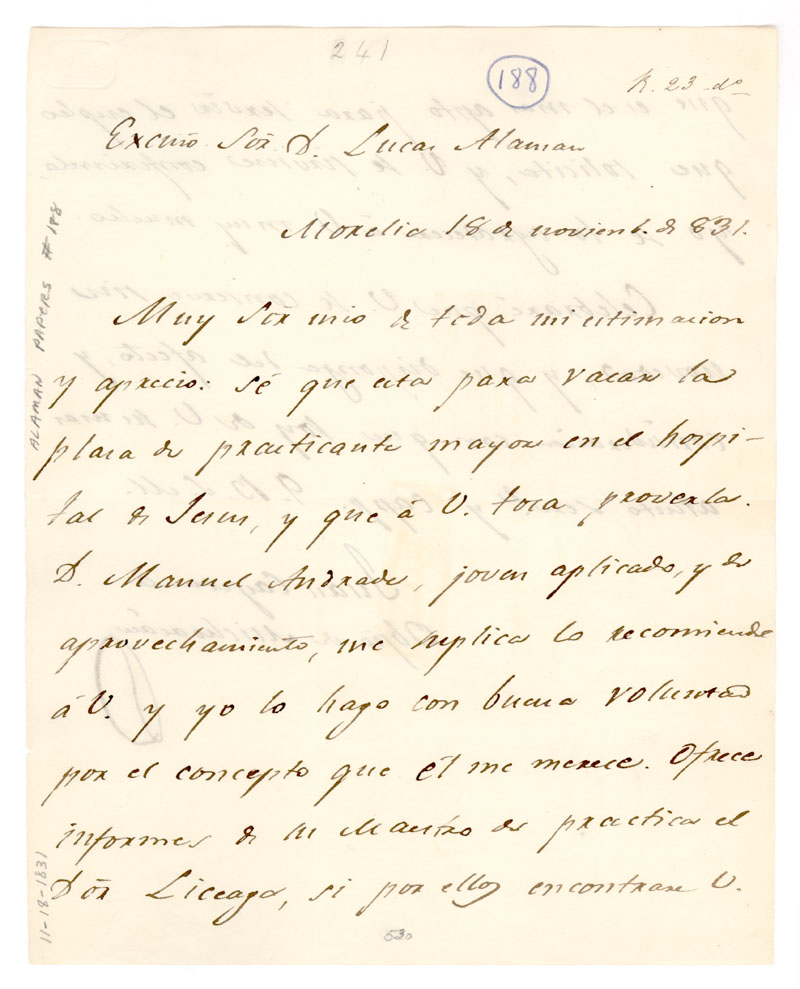 241
188
R. 23 do
Excmo. Sõr. D. Lucas Alaman
Morelia 18 de noviemb. de 831.
Muy Sõr mio de toda mi estimacion
y aprecio: sé que esta para vacar la
plasa de practicante mayor en el hospi-
tal de Jesus, y que á V. toca proverla.
D. Manuel Andrade, joven aplicado, y de
aprovechamiento, me suplica lo recomiende
á V. y yo lo hago con buena voluntad
por el concepto que él me merece. Ofrece
informes de su Maestro de practica el
Dõr Liceaga, si por ellos encontrare V.
530
ALAMAN PAPERS # 188
11-18-1831